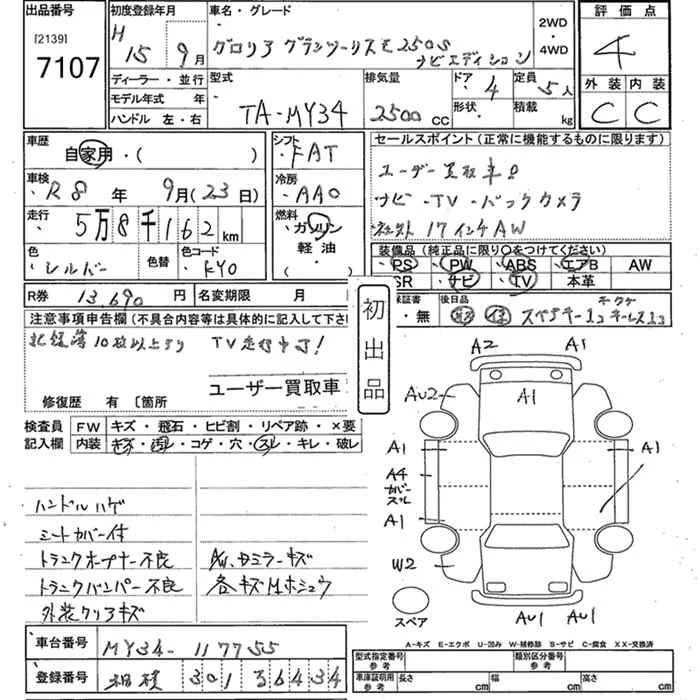 出品番号
[2139]
7107
初度登録年月
H 15 年 9 月
車名・グレード
グロリア グランツーリスモ 250S
ナビエディション
2WD
・
4WD
評価点
4
外装 内装
C C
ディーラー・並行
モデル年式 年
ハンドル 左・右
型式
TA-MY34
排気量
2500 CC
ドア
・4
形状・
定員
・5人
積載
・ kg
車歴
自家用・( )
車検
・R8 年 9月(23日)
走行
・5万8千162 km
色
・シルバー
色替
色コード
・KY0
シフト
・FAT
冷房
・AAC
燃料
ガソリン
軽油・
・( )
セールスポイント(正常に機能するものに限ります)
ユーザー買取車
ナビ・TV・バックカメラ
社外17インチAW
装備品(純正品に限り○をつけてください)
・PS ・PW ・ABS ・エアB AW
SR ・ナビ ・TV 本革
R券 13,690 円
名変期限 月
初出品
保証書
・無
後日品
スペアキー1コ キーレス1コ
注意事項申告欄(不具合内容等は具体的に記入して下さ
記録簿10枚以上あり TV走行中可!
ユーザー買取車
修復歴 有 〔箇所
検査員
記入欄
FW キズ・飛石・ヒビ割・リペア跡・×要
内装 キズ・汚レ・コゲ・穴・スレ・キレ・破レ
ハンドルハゲ
シートカバー付
トランクオープナー不良
トランクバンパー不良 AW、Dミラーキズ
外装クリアキズ 各キズMホシュウ
A2 A1
AU2 A1
A1 A1
A4
カバー
スレ
A1
W2
スペア
AU1 AU1
A-キズ E-エクボ U-凹み W-補修跡 S-サビ C-腐食 XX-交換済
車台番号 MY34-117755
登録番号 相模 301 , 3434
型式指定番号
参考
類別区分番号
参考
車庫証明用
参考
長さ cm 幅 cm 高さ cm